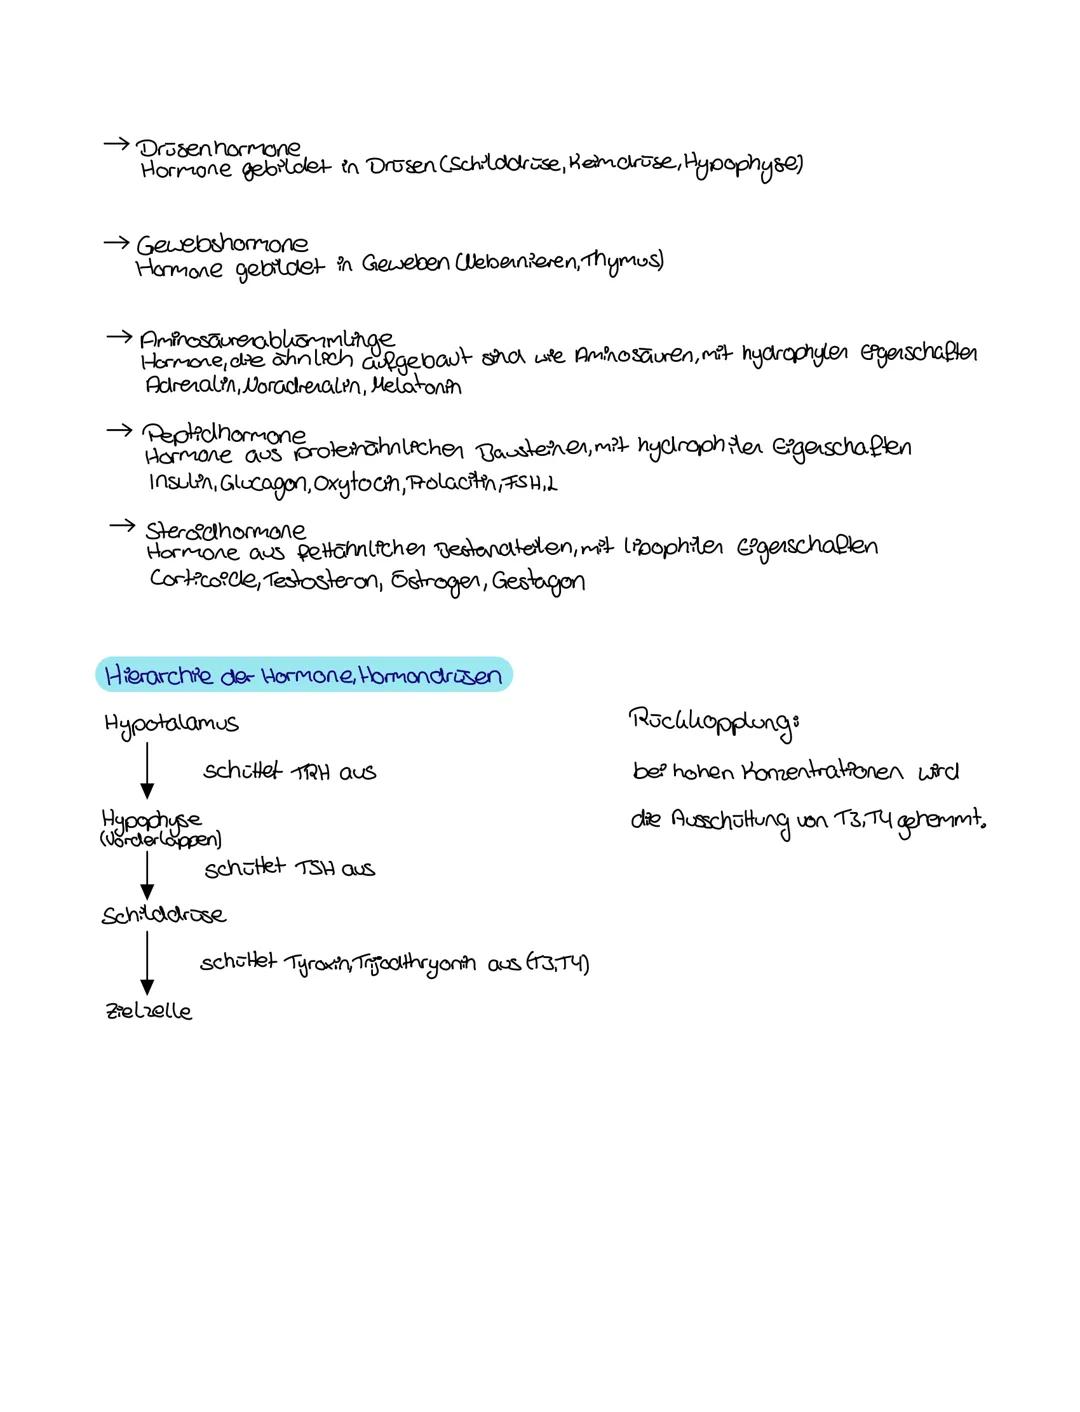 → Drüsenhormone
Hormone gebildet in Drüsen (Schilddrüse, Keimdrüse, Hypophyse)
→ Gewebshormone
Hormone gebildet in Geweben (Nebennieren, Thymus)
→ Aminosäureabkömmlinge
Hormone, die ähnlich aufgebaut sind wie Aminosäuren, mit hydrophylen Eigenschaften
Adrenalin, Noradrenalin, Melatonin
→ Peptidhormone
Hormone aus proteinähnlichen Bausteinen, mit hydrophilen Eigenschaften
Insulin, Glucagon, Oxytocin, Prolacitin, FSH, L
→ Steroidhormone
Hormone aus fettähnlichen Bestandteilen, mit lipophilen Eigenschaften
Corticoide, Testosteron, Östrogen, Gestagon
Hierarchie der Hormone, Hormondrüsen
Hypotalamus
schüttet TRH aus
Hypophyse
(Vorderlappen)
schüttet TSH aus
Schilddrüse
schüttet Tyroxin, Trijodthryonin aus (T3, T4)
Zielzelle
Rückkopplung:
bei hohen Konzentrationen wird
die Ausschüttung von T3, T4 gehemmt.